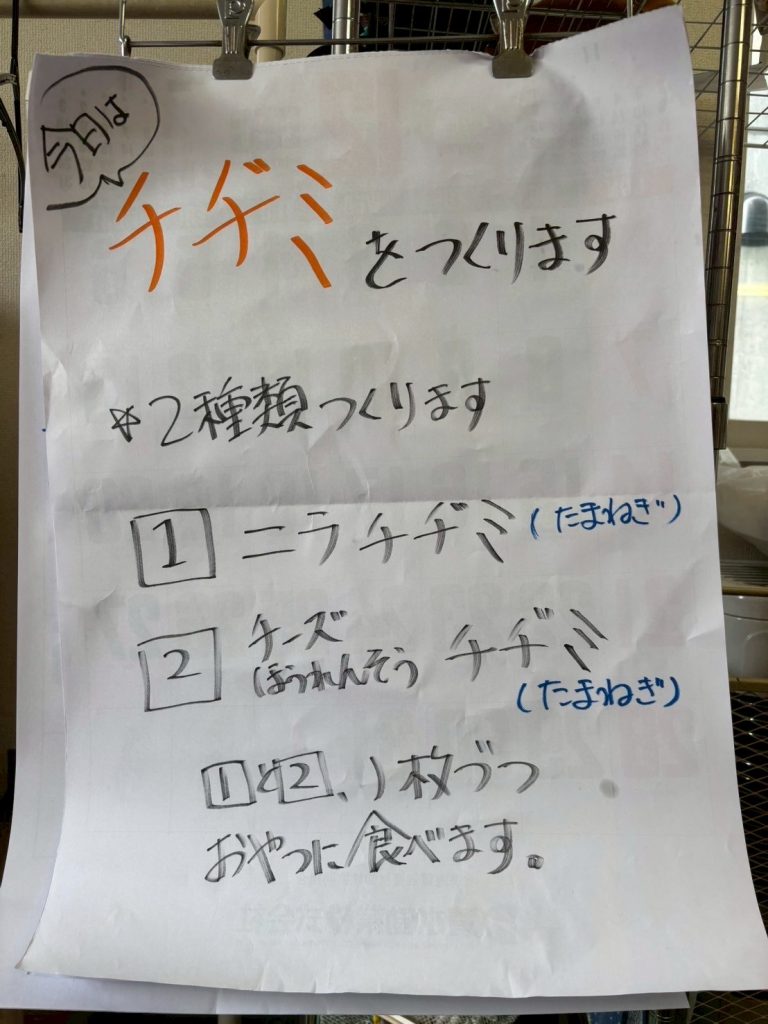 今日は
チヂミをつくります
☆2種類つくります
1 ニラチヂミ(たまねぎ)
2 チーズ
ほうれんそう チヂミ
(たまねぎ)
1と2、1枚づつ
おやつに食べます。